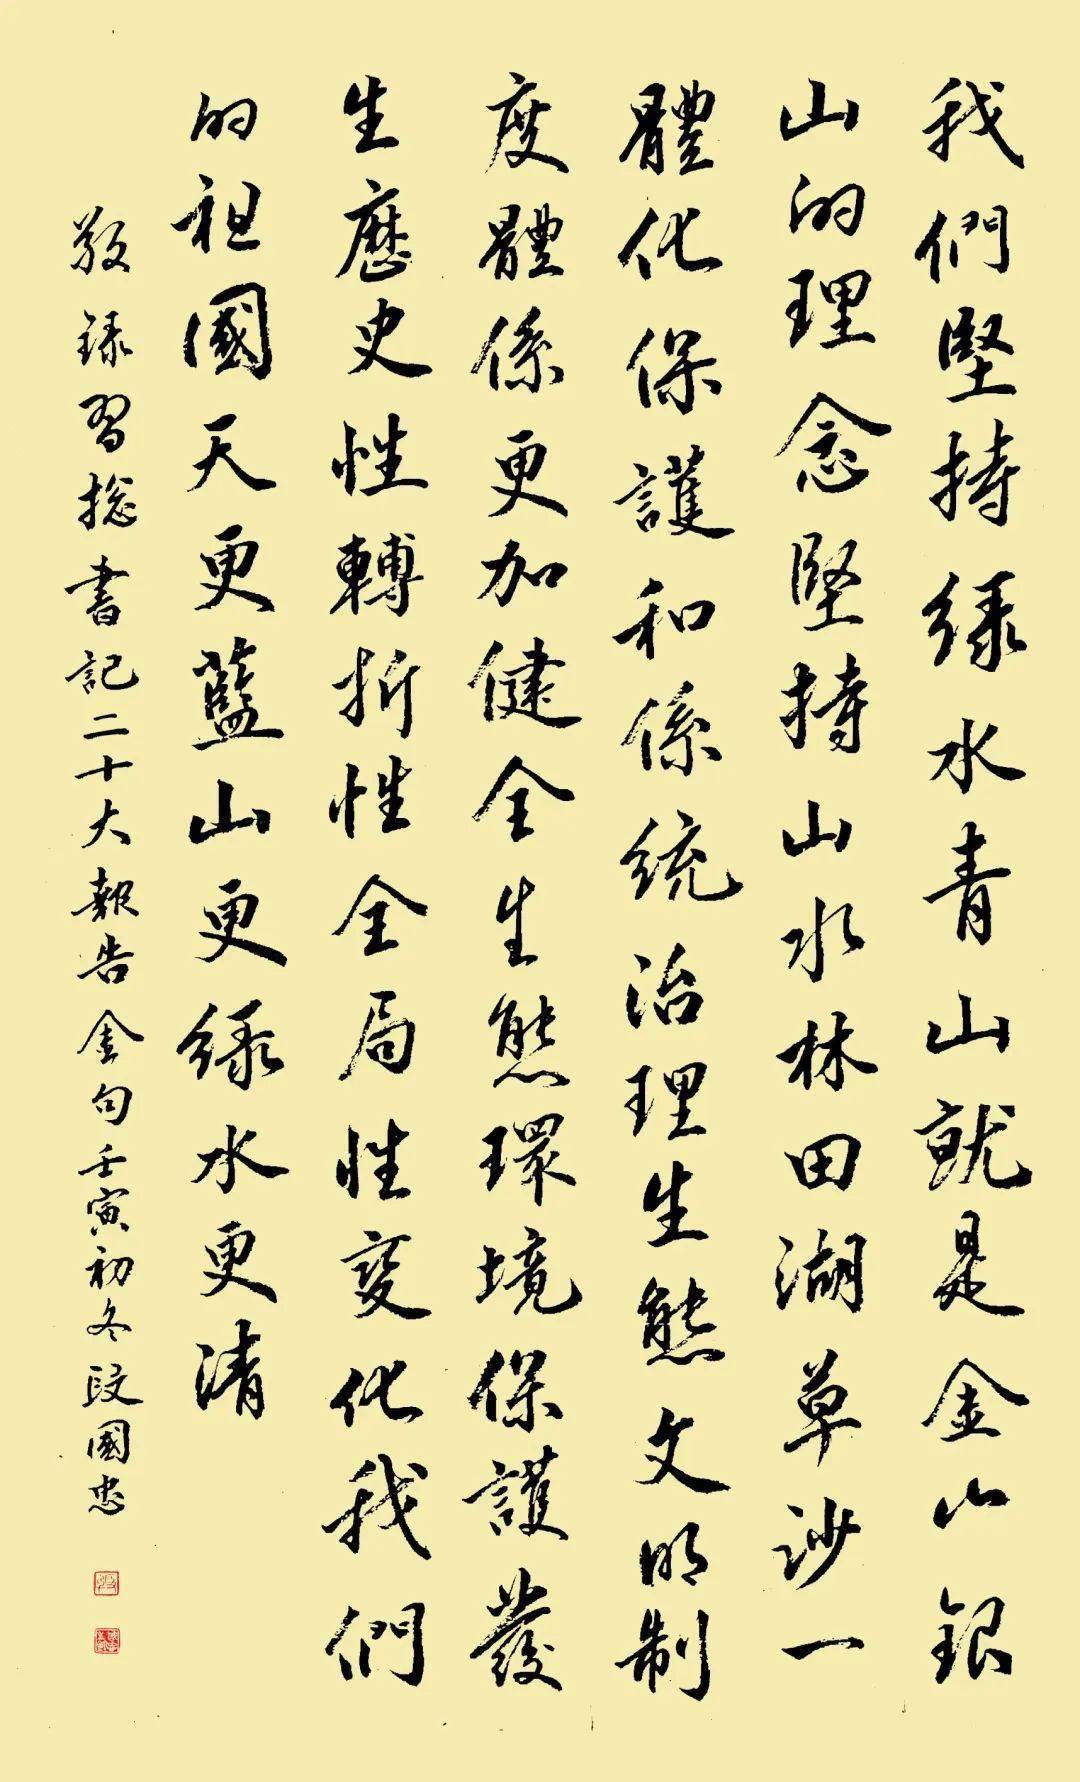 我們堅持緑水青山就是金山銀
山的理念堅持山水林田湖草沙一
體化保護和係統治理生態文明制
度體係更加健全生態環境保護發
生歷史性轉折性全局性變化我們
的祖國天更藍山更緑水更清
敬録習總書記二十大報告金句壬寅初冬段國忠